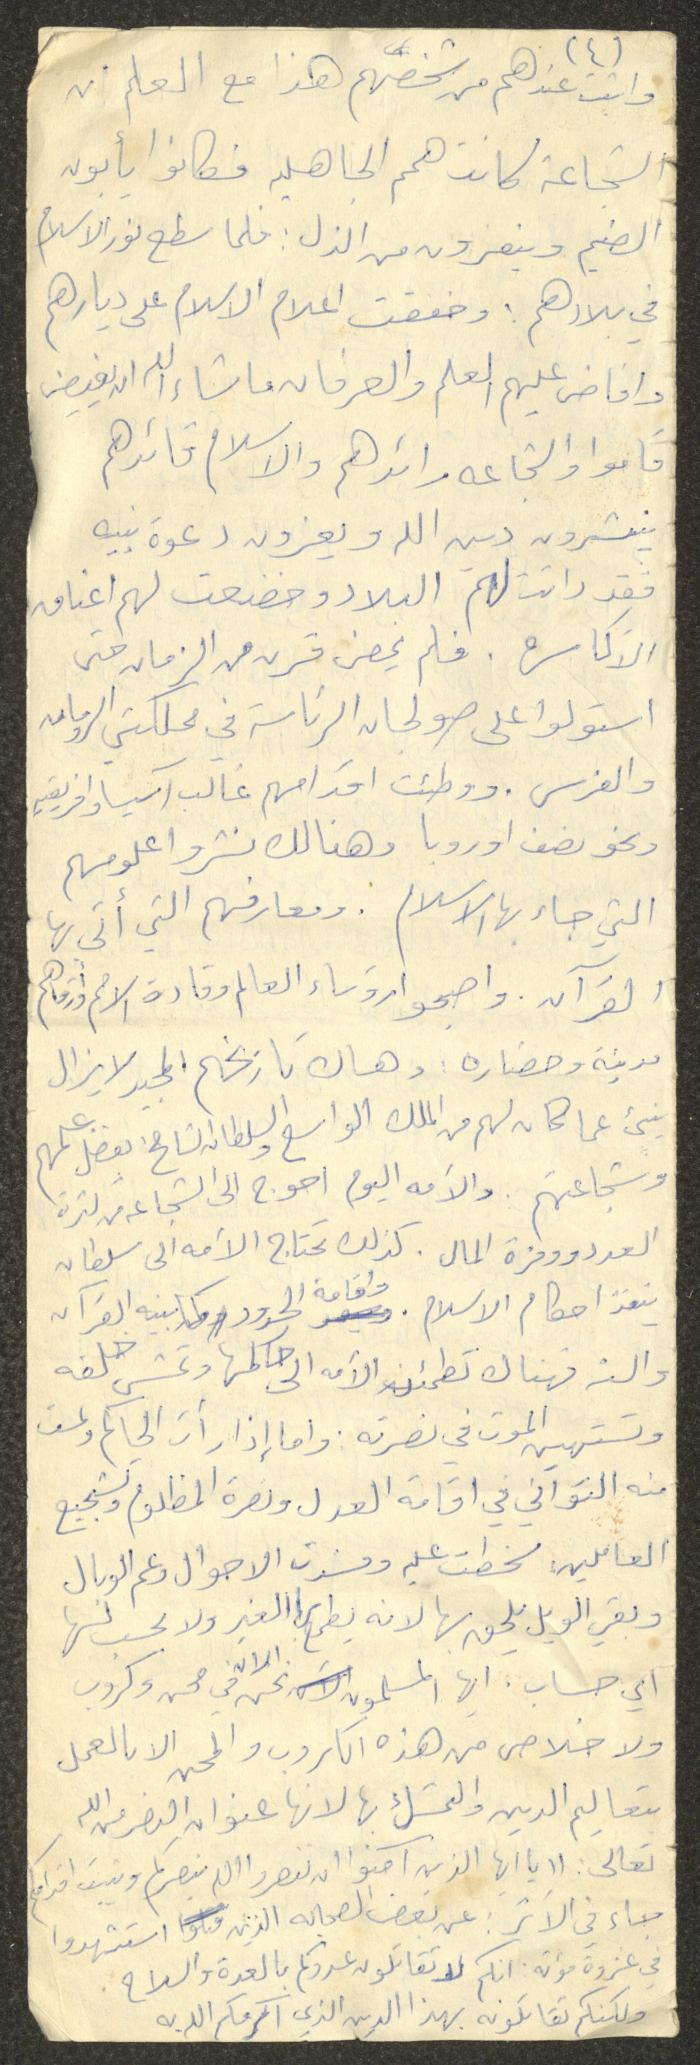 (٤)
واثبت عندهم من شخصهم هذا مع العلم ان
الشجاعة كانت همم الجاهليه فكانوا يأبون
الضيم وينفرون من الذل: فلما سطع نور الاسلام
في بلادهم: وخفقت اعلام الاسلام على ديارهم
وافاض عليهم العلم والعرفان ما شاء الله ان يفيض
قاموا والشجاعه رائدهم والاسلام قائدهم
ينشرون دين الله ويعزون دعوة نبيه
فقد دانت لهم البلاد وخضعت لهم اعناق
الاكاسره. فلم يمض قرن من الزمان حتى
استولوا على صولجان الرئاسة في مملكتي الرومان
والفرس. ووطئت اقدامهم غالب آسيا وافريقيه
ونحو نصف اوروبا وهنالك نشروا علومهم
التي جاء بها الاسلام. ومعارفهم التي أتى بها
القرآن. واصبحوا رؤساء العالم وقادة الامم وأرقاهم
مدينة وحضاره: وهاك تاريخهم المجيد لا يزال
ينبئ عما كان لهم من الملك الواسع والسلطان الشامخ: بفضل علمهم
وشجاعتهم. والأمه اليوم احوج الى الشجاعه من كثرة
العدد ووفرة المال. كذلك تحتاج الأمه الى سلطان
ينفذ احكام الاسلام. واقامة الحدود كما بينه القرآن
والسنه فهناك تطمئن الأمه الى حاكمها وتمشي خلفه
وتستهين الموت في نصرته: واما إذا رأت الحاكم ولمست
منه التواني في اقامة العدل ونصرة المظلوم وتشجيع
العاملين: سخطت عليه وفسدت الاحوال وعم الوبال
وبقي الويل يلحق بها لانه يطمع بها الغير ولا يحسب لها
اي حساب. ايها المسلمون نحن الان في محن وكروب
ولا خلاص من هذه الكروب والمحن الا بالعمل
بتعاليم الدين والتمسك بها لانها عنوان النصر من الله
تعالى: "يا ايها الذين آمنوا ان تنصروا الله ينصركم ويثبت اقدامكم
جاء في الأثر: عن بعض الصحابه الذين استشهدوا
في غزوة مؤته: انكم لا تقاتلون عدوكم بالعدة والسلاح
ولكنكم تقاتلونه بهذا الدين الذي اكرمكم الله به